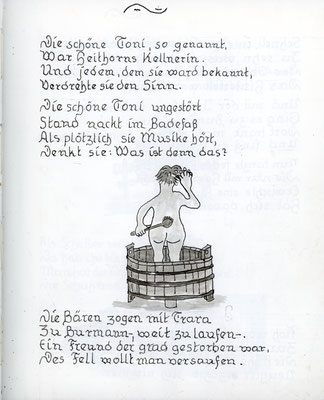 Die schöne Toni, so genannt,
War Heithorns Kellnerin.
Und jedem, dem sie ward bekannt,
Verdrehte sie den Sinn.
Die schöne Toni ungestört
Stand nackt im Badefaß
Als plötzlich sie Musike hört,
Denkt sie: Was ist denn das?
Die Bären zogen mit Trara
Zu Burmann-, weit zu laufen-.
Ein Freund der grad gestorben war,
Des Fell wollt man versaufen.